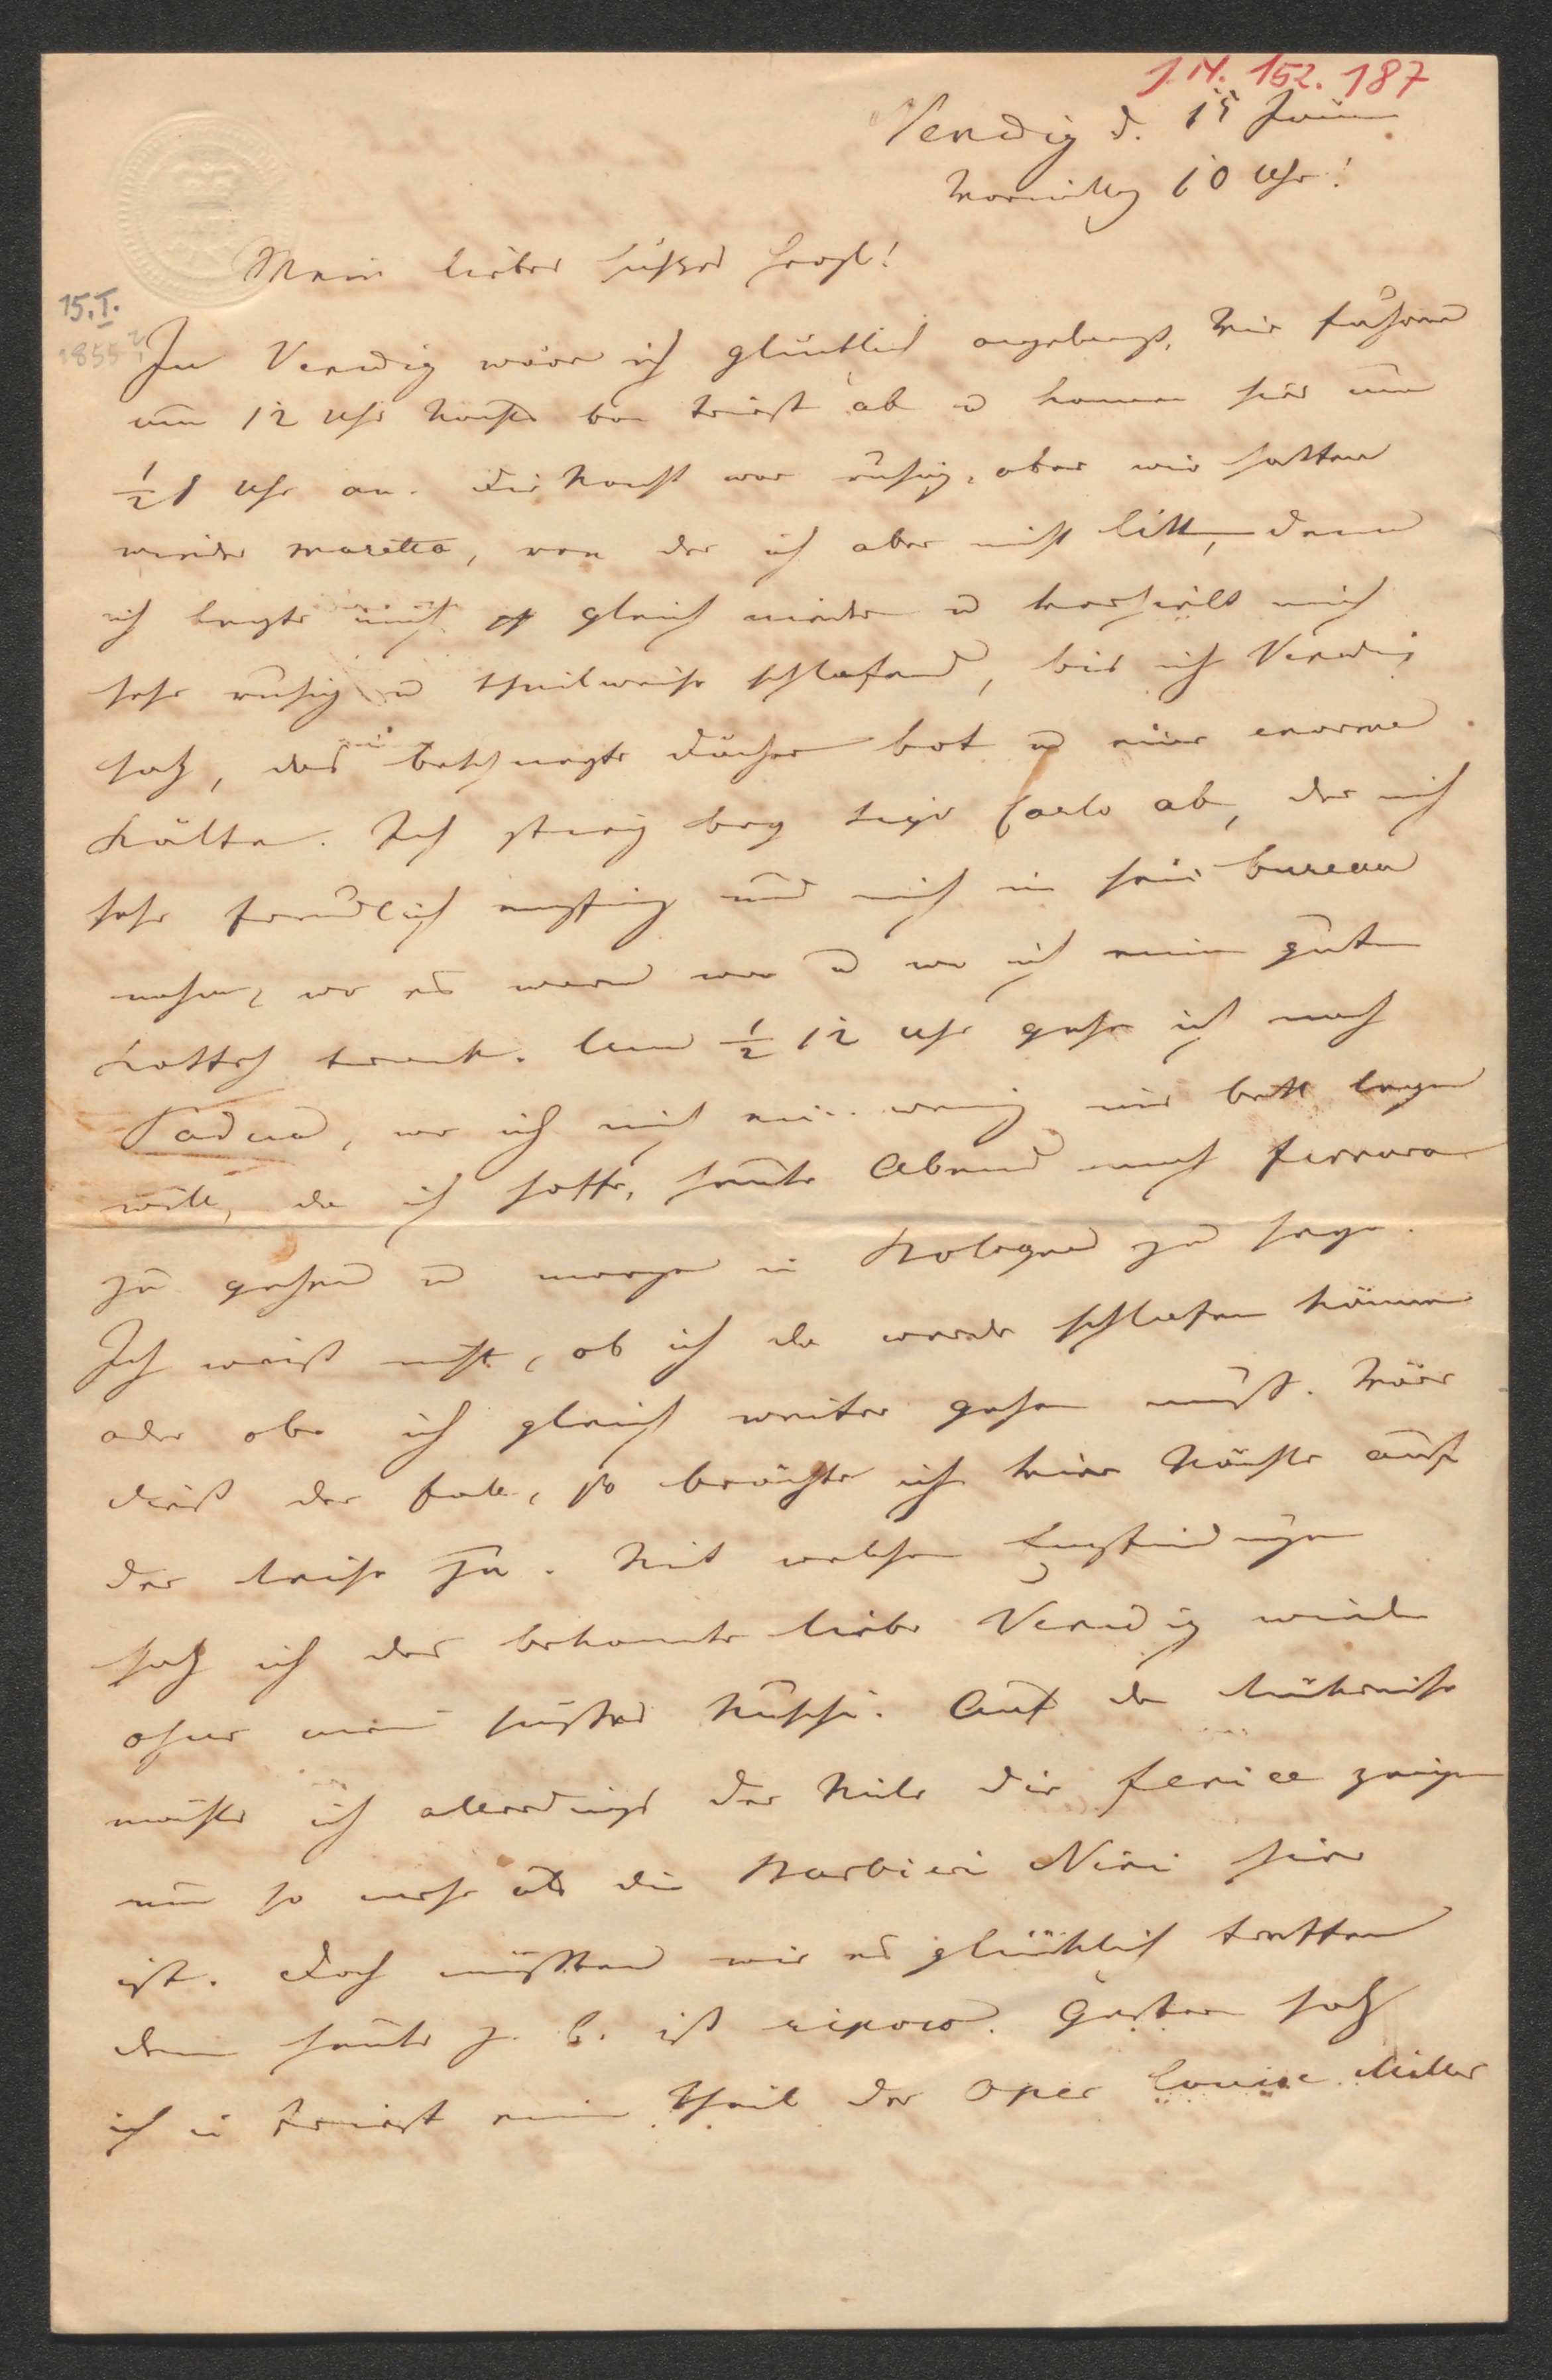 J.N. 152.187
Venedig d. 15 Jänn
Vormittag 10 Uhr!
Mein liebes süßes Herzl!
15.I.
1855?
In Venedig wäre ich glücklich angelangt. Wir fuhren
um 12 Uhr Nachts von Triest ab u kamen hier um
½8 Uhr an. Die Nacht war ruhig, aber wir hatten
wieder maretta, von der ich aber nicht litt, denn
ich legte mich gleich nieder u verhielt mich
sehr ruhig u theilweise schlafend, bis ich Venedig
sah, das mir beschneyte Dächer bot u eine enorme
Kälte. Ich stieg bey Sigr Carlo ab, der mich
sehr freundlich empfing und mich in sein bureau
nahm, wo es warm war u wo ich einen guten
Kaffeh trank. Um ½12 Uhr gehe ich nach
Padua, wo ich mich ein wenig ins bett legen
will, da ich hoffe, heute Abend nach ferrara
zu gehen u morgen in Bologna zu seyn.
Ich weiß nicht, ob ich da werde schlafen können
oder ob ich gleich weiter gehen muß. Wäre
dieß der fall, so brächte ich vier Nächte auf
der Reise zu. Mit welchen Empfindungen
sah ich das bekannte liebe Venedig wieder
ohne mein süßes . Auf der Rückreise
möchte ich allerdings der Mila die fenice zeigen
um so mehr als die Barbieri Nini hier
ist. Doch müßten wir es glücklich treffen
denn heute z. b. ist riposo. Gestern sah
ich in Triest einen Theil der Oper Louise Miller